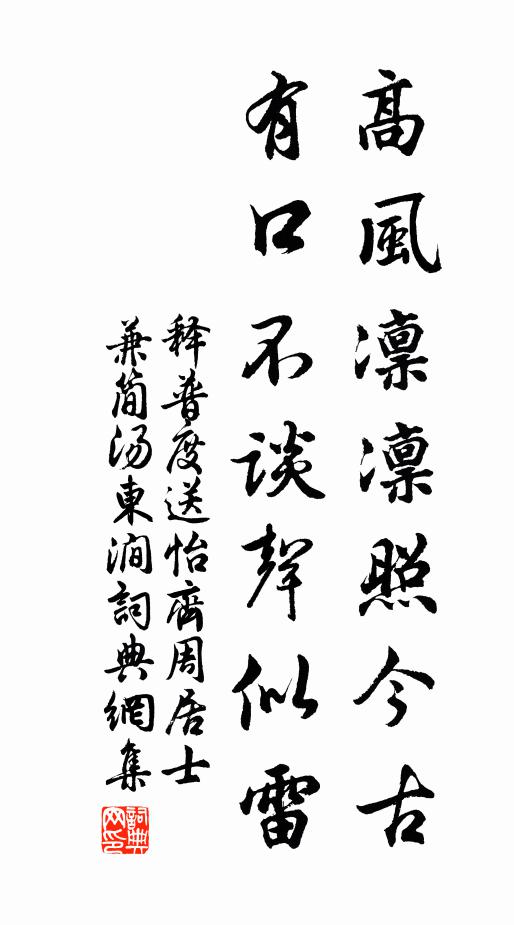 高風凛凛照今古
有口不談聲似雷
释普度送怡齊周居士
兼简汤東澗詞典網集
詞典
网印